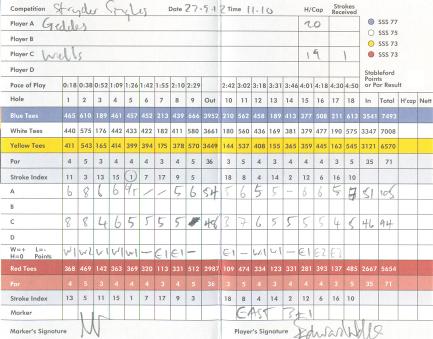 Competition Stryder Singles Date 27-9-12 Time 11.10 H/Cap Strokes Received
Player A Geddes 20
Player B
Player C Wells 19 1
Player D
SSS 77
SSS 75
SSS 73
SSS 73
Stableford Points or Par Result
Pace of Play 0:18 0:38 0:52 1:09 1:26 1:42 1:55 2:10 2:29 2:42 3:02 3:18 3:31 3:46 4:01 4:18 4:30 4:50
Hole 1 2 3 4 5 6 7 8 9 Out 10 11 12 13 14 15 16 17 18 In Total H'cap Nett
Blue Tees 465 610 189 461 457 452 213 439 666 3952 210 562 458 189 413 377 508 211 613 3541 7493
White Tees 440 575 176 442 433 422 182 411 580 3661 180 560 436 169 381 379 477 190 575 3347 7008
Yellow Tees 411 543 165 414 399 394 175 378 570 3449 144 537 408 155 365 359 445 163 545 3121 6570
Par 4 5 3 4 4 4 3 4 5 36 3 5 4 3 4 4 4 3 5 35 71
Stroke Index 13 5 11 15 1 7 17 9 3 18 8 4 14 2 12 6 16 10
A 6 8 6 6 5 6 54 5 6 5 5 6 6 5 51 105
B
C 8 8 4 6 5 5 5 5 48 3 7 6 5 5 5 5 4 46 94
D
W=+ L=- H=0 Points
Red Tees 368 469 142 363 369 320 113 331 512 2987 109 474 334 123 331 281 393 137 485 2667 5654
Par 4 5 3 4 4 4 3 4 5 36 3 5 4 3 4 4 4 3 5 35 71
Stroke Index 13 5 11 15 1 7 17 9 3 18 8 4 14 2 12 6 16 10
Marker EAST
Marker's Signature Player's Signature